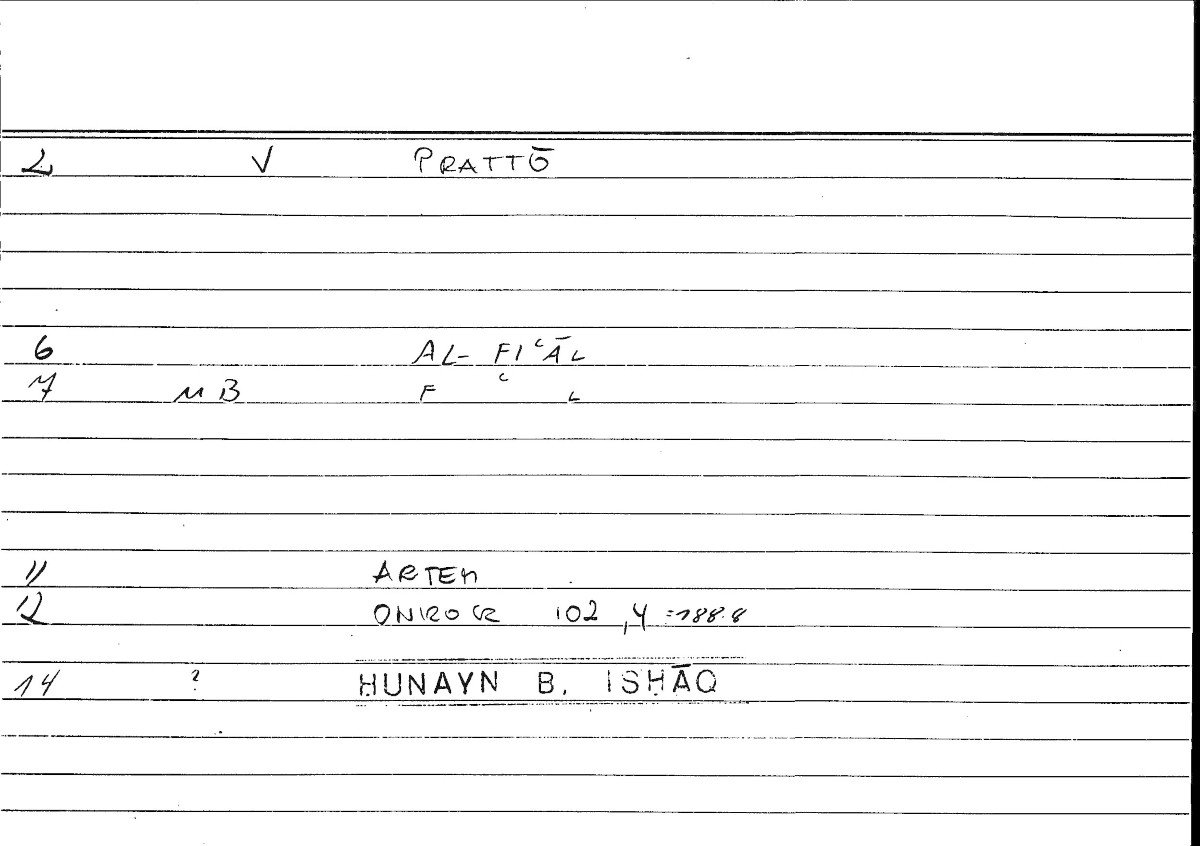 2 V PRATTŌ
6 AL- FIʿĀL
7 MB F ʿ L
11 ARTEM
12 ONIROCR 102,4 =188.8
14 ? ḤUNAYN B. ISḤĀQ